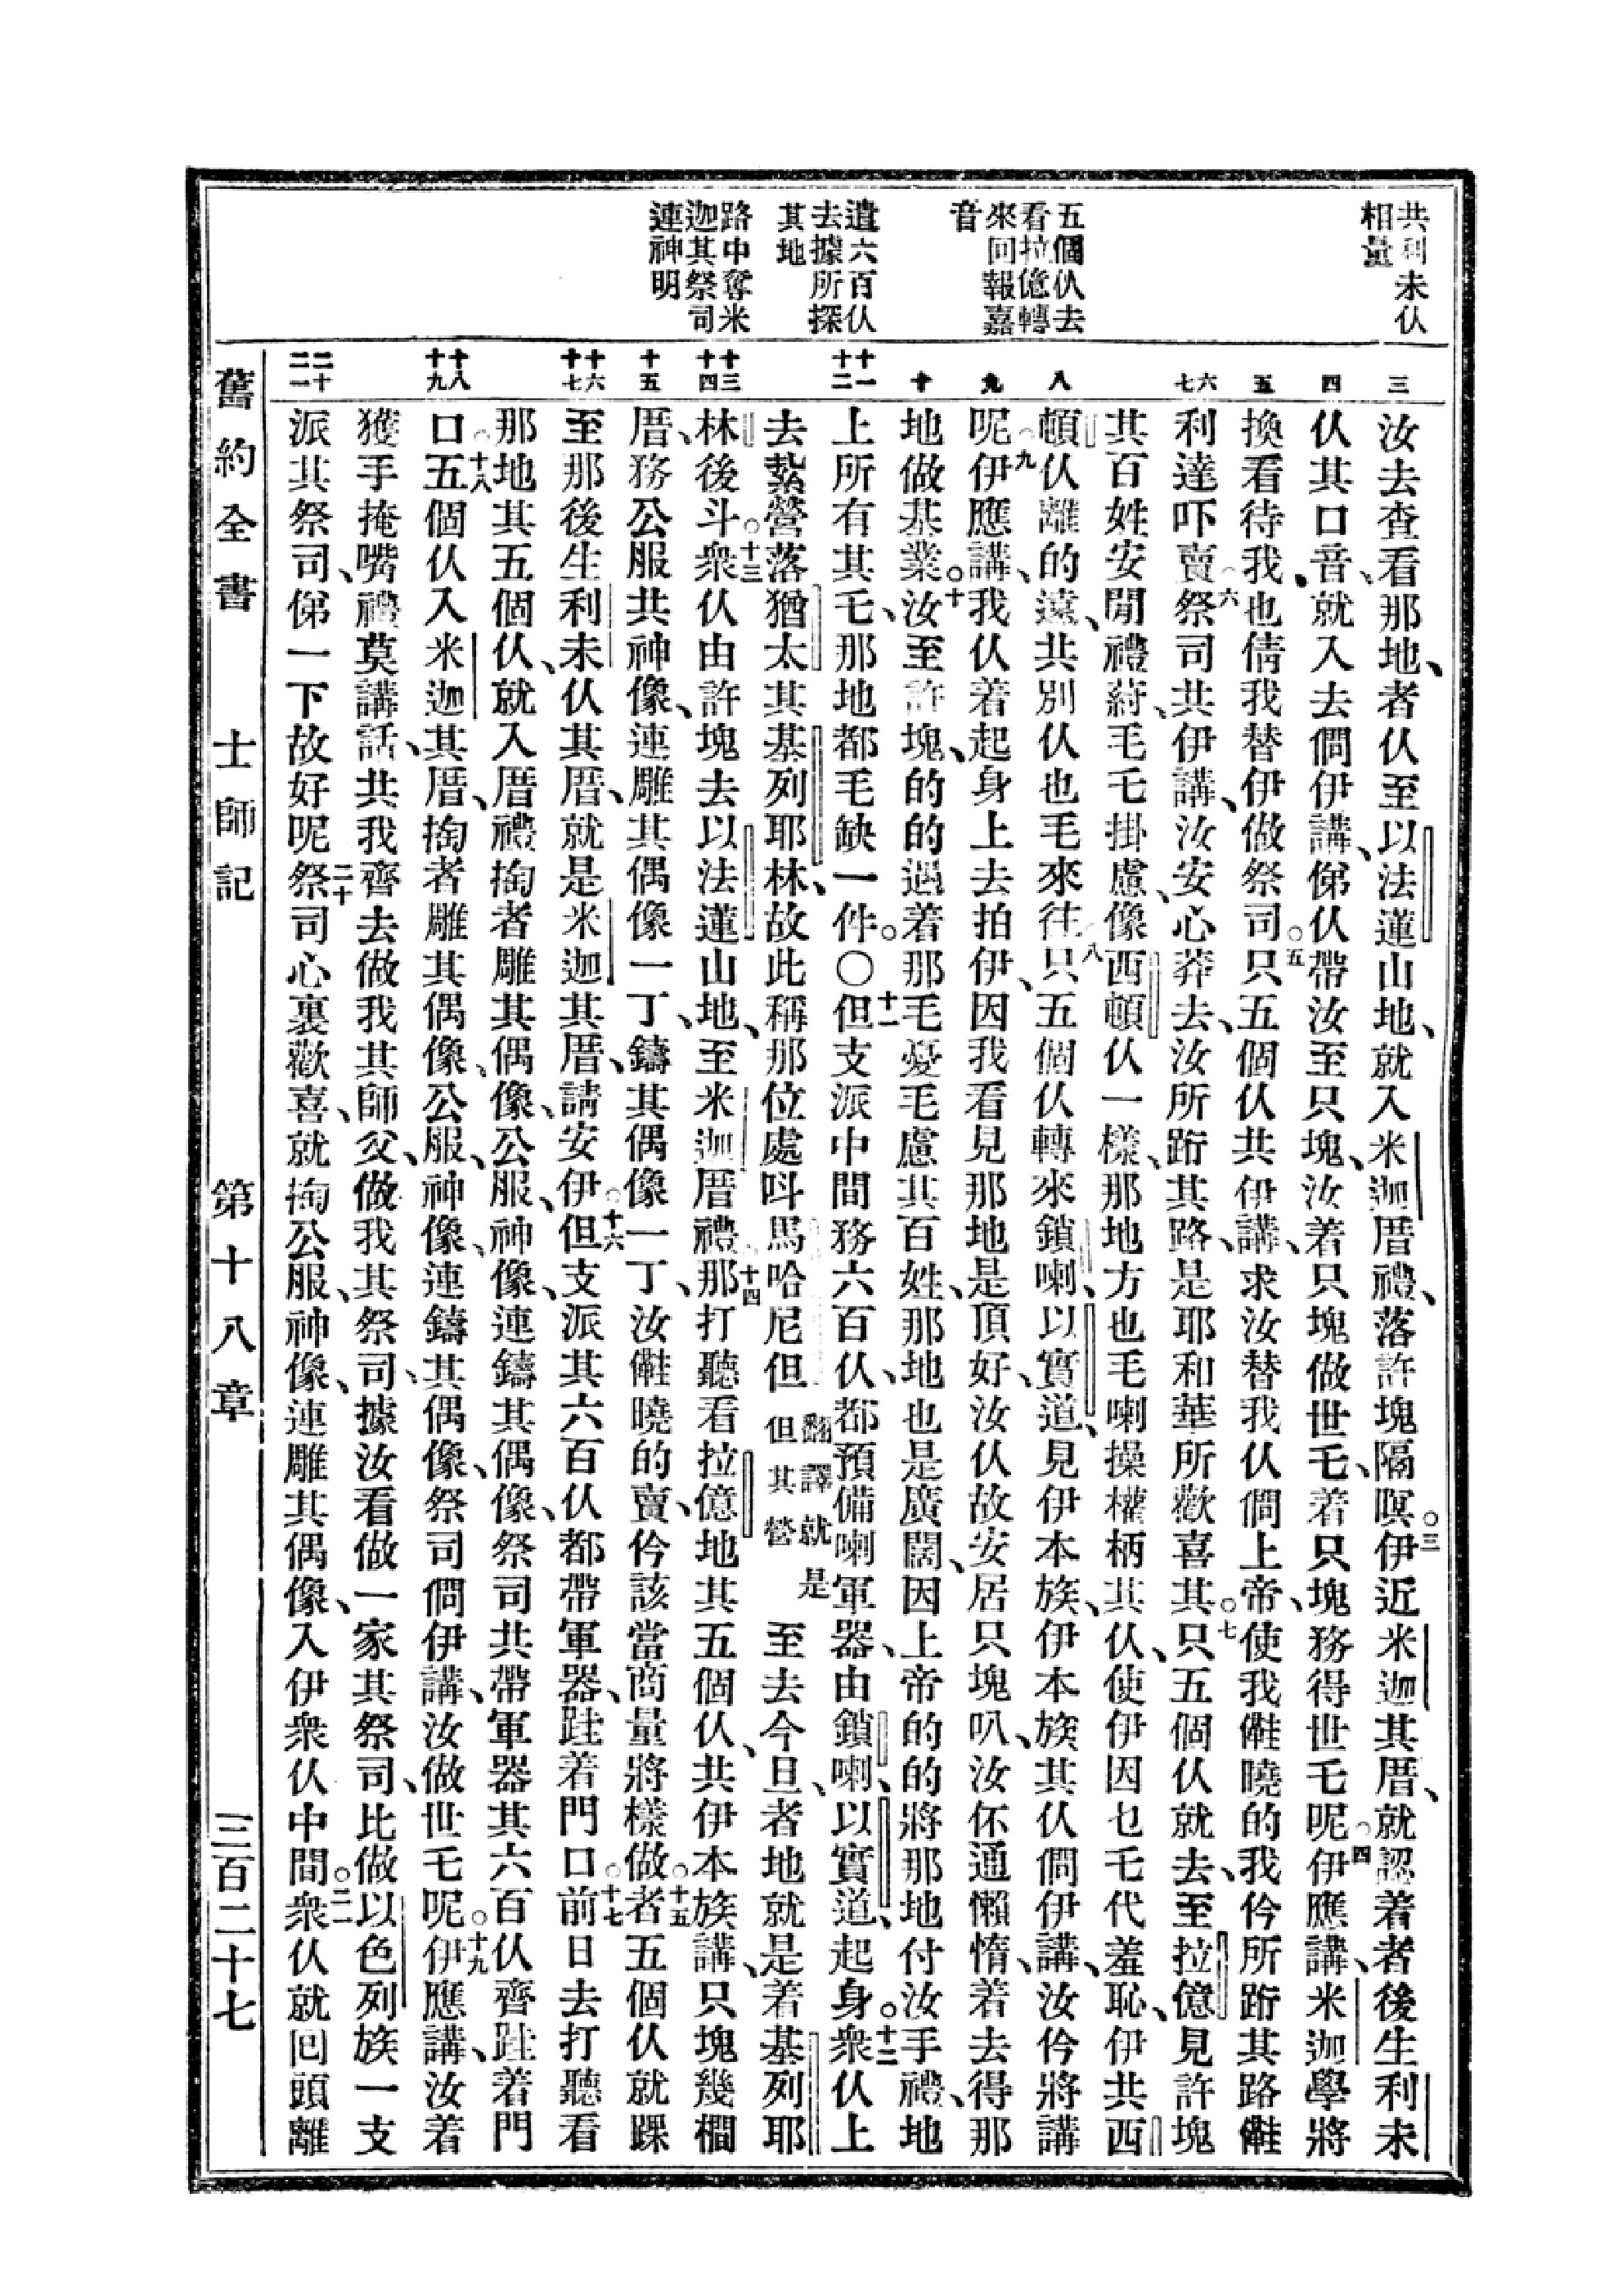 共利未仈
相量
五個仈去
看拉億轉
來回報嘉
音
遣六百仈
去據所探
其地
路中奪米
迦其祭司
連神明
三
四
五
六
七
八
九
十
十一
十二
十三
十四
十五
十六
十七
十八
十九
二十
二一
汝去查看那地、者仈至以法蓮山地、就入米迦厝禮、落許塊隔暝○三伊近米迦其厝、就認着者後生利未
仈其口音、就入去僩伊講、俤仈帶汝至只塊、汝着只塊做世乇、着只塊務得世乇呢○四伊應講、米迦學將
換看待我、也倩我替伊做祭司○五只五個仈共伊講、求汝替我仈僩上帝、使我𣍐曉的我仱所跲其路𣍐
利達吓賣○六祭司共伊講、汝安心莽去、汝所跲其路、是耶和華所歡喜其○七只五個仈就去、至拉億見許塊
其百姓安閒禮葤、毛乇掛慮、像西頓仈一樣、那地方也毛喇操權柄其仈、使伊因乜乇代羞恥、伊共西
頓仈離的遠、共別仈也毛來往○八只五個仈轉來鎖喇、以實道、見伊本族、伊本族其仈僩伊講、汝仱將講
呢○九伊應講、我仈着起身上去拍伊、因我看見那地是頂好、汝仈故安居只塊叭、汝伓通懶惰、着去得那
地做基業○十汝至許塊、的的遇着那毛憂毛慮其百姓、那地也是廣闊、因上帝的的將那地付汝手禮、地
上所有其乇、那地都毛缺一件○〇十一但支派中間務六百仈、都預備喇軍器、由鎖喇、以實道、起身○十二衆仈上
去紮營落猶太其基列耶林、故此稱那位處呌馬哈尼但翻譯就是但其營至去今旦、者地就是着基列耶
林後斗○十三衆仈由許塊去以法蓮山地、至米迦厝禮○十四那打聽看拉億地其五個仈、共伊本族講、只塊幾櫊
厝、務公服共神像、連雕其偶像一丁、鑄其偶像一丁、汝𣍐曉的賣、仱該當商量將樣做○十五者五個仈就踝
至那後生利未仈其厝、就是米迦其厝、請安伊○十六但支派其六百仈都帶軍器、跬着門口○十七前日去打聽看
那地其五個仈、就入厝禮掏者雕其偶像、公服、神像、連鑄其偶像、祭司共帶軍器其六百仈齊跬着門
口○十八五個仈入米迦其厝、掏者雕其偶像、公服、神像、連鑄其偶像、祭司僩伊講、汝做世乇呢○十九伊應講、汝着
獲手掩嘴禮莫講話、共我齊去、做我其師父、做我其祭司、據汝看做一家其祭司、比做以色列族一支
派其祭司、俤一下故好呢○二十祭司心裏歡喜、就掏公服、神像、連雕其偶像、入伊衆仈中間○二一衆仈就回頭離
舊約全書　士師記　第十八章　三百二十七